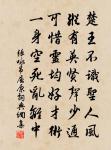 楚王不識聖人風
縱有英賢少通
可惜靈均好才術
一身空死亂離中